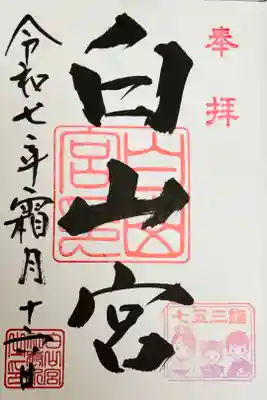 奉拝
白山宮
令和七年霜月十六日
七五三詣